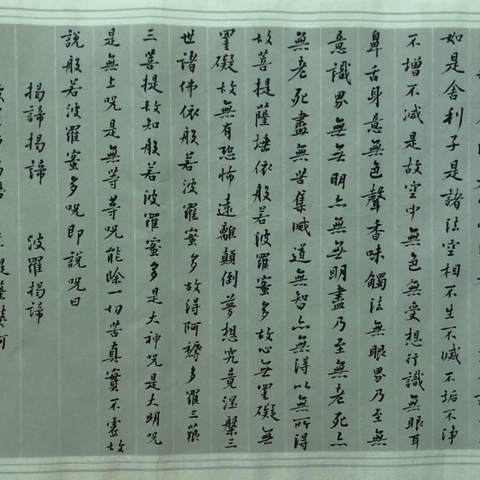 如是舍利子是諸法空相不生不滅不垢不淨
不增不減是故空中無色無受想行識無眼耳
鼻舌身意無色聲香味觸法無眼界乃至無
意識界無无明亦無无明盡乃至無老死亦
無老死盡無苦集滅道無智亦無得以無所得
故菩提薩埵依般若波羅蜜多故心无罣礙無
罣礙故無有恐怖遠離顛倒夢想究竟涅槃三
世諸佛依般若波羅蜜多故得阿耨多羅三藐
三菩提故知般若波羅蜜多是大神呪是大明呪
是無上呪是無等等呪能除一切苦真實不虛故
說般若波羅蜜多呪即說呪曰
揭諦揭諦 波羅揭諦